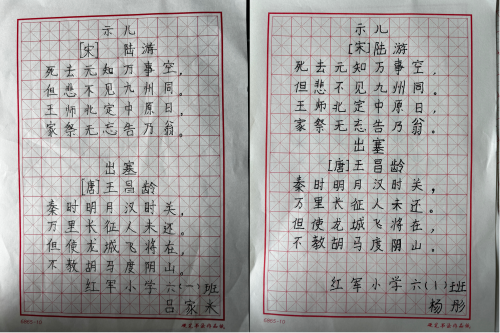 示儿
[宋] 陆游
死去元知万事空，
但悲不见九州同。
王师北定中原日，
家祭无忘告乃翁。
出塞
[唐]王昌龄
秦时明月汉时关，
万里长征人未还。
但使龙城飞将在，
不教胡马度阴山。
红军小学六(一)班
吕家米
示儿
[宋]陆游
死去元知万事空，
但悲不见九州同。
王师北定中原日，
家祭无忘告乃翁。
出塞
[唐]王昌龄
秦时明月汉时关，
万里长征人未还。
但使龙城飞将在，
不教胡马度阴山。
红军小学六(1)班
杨彤